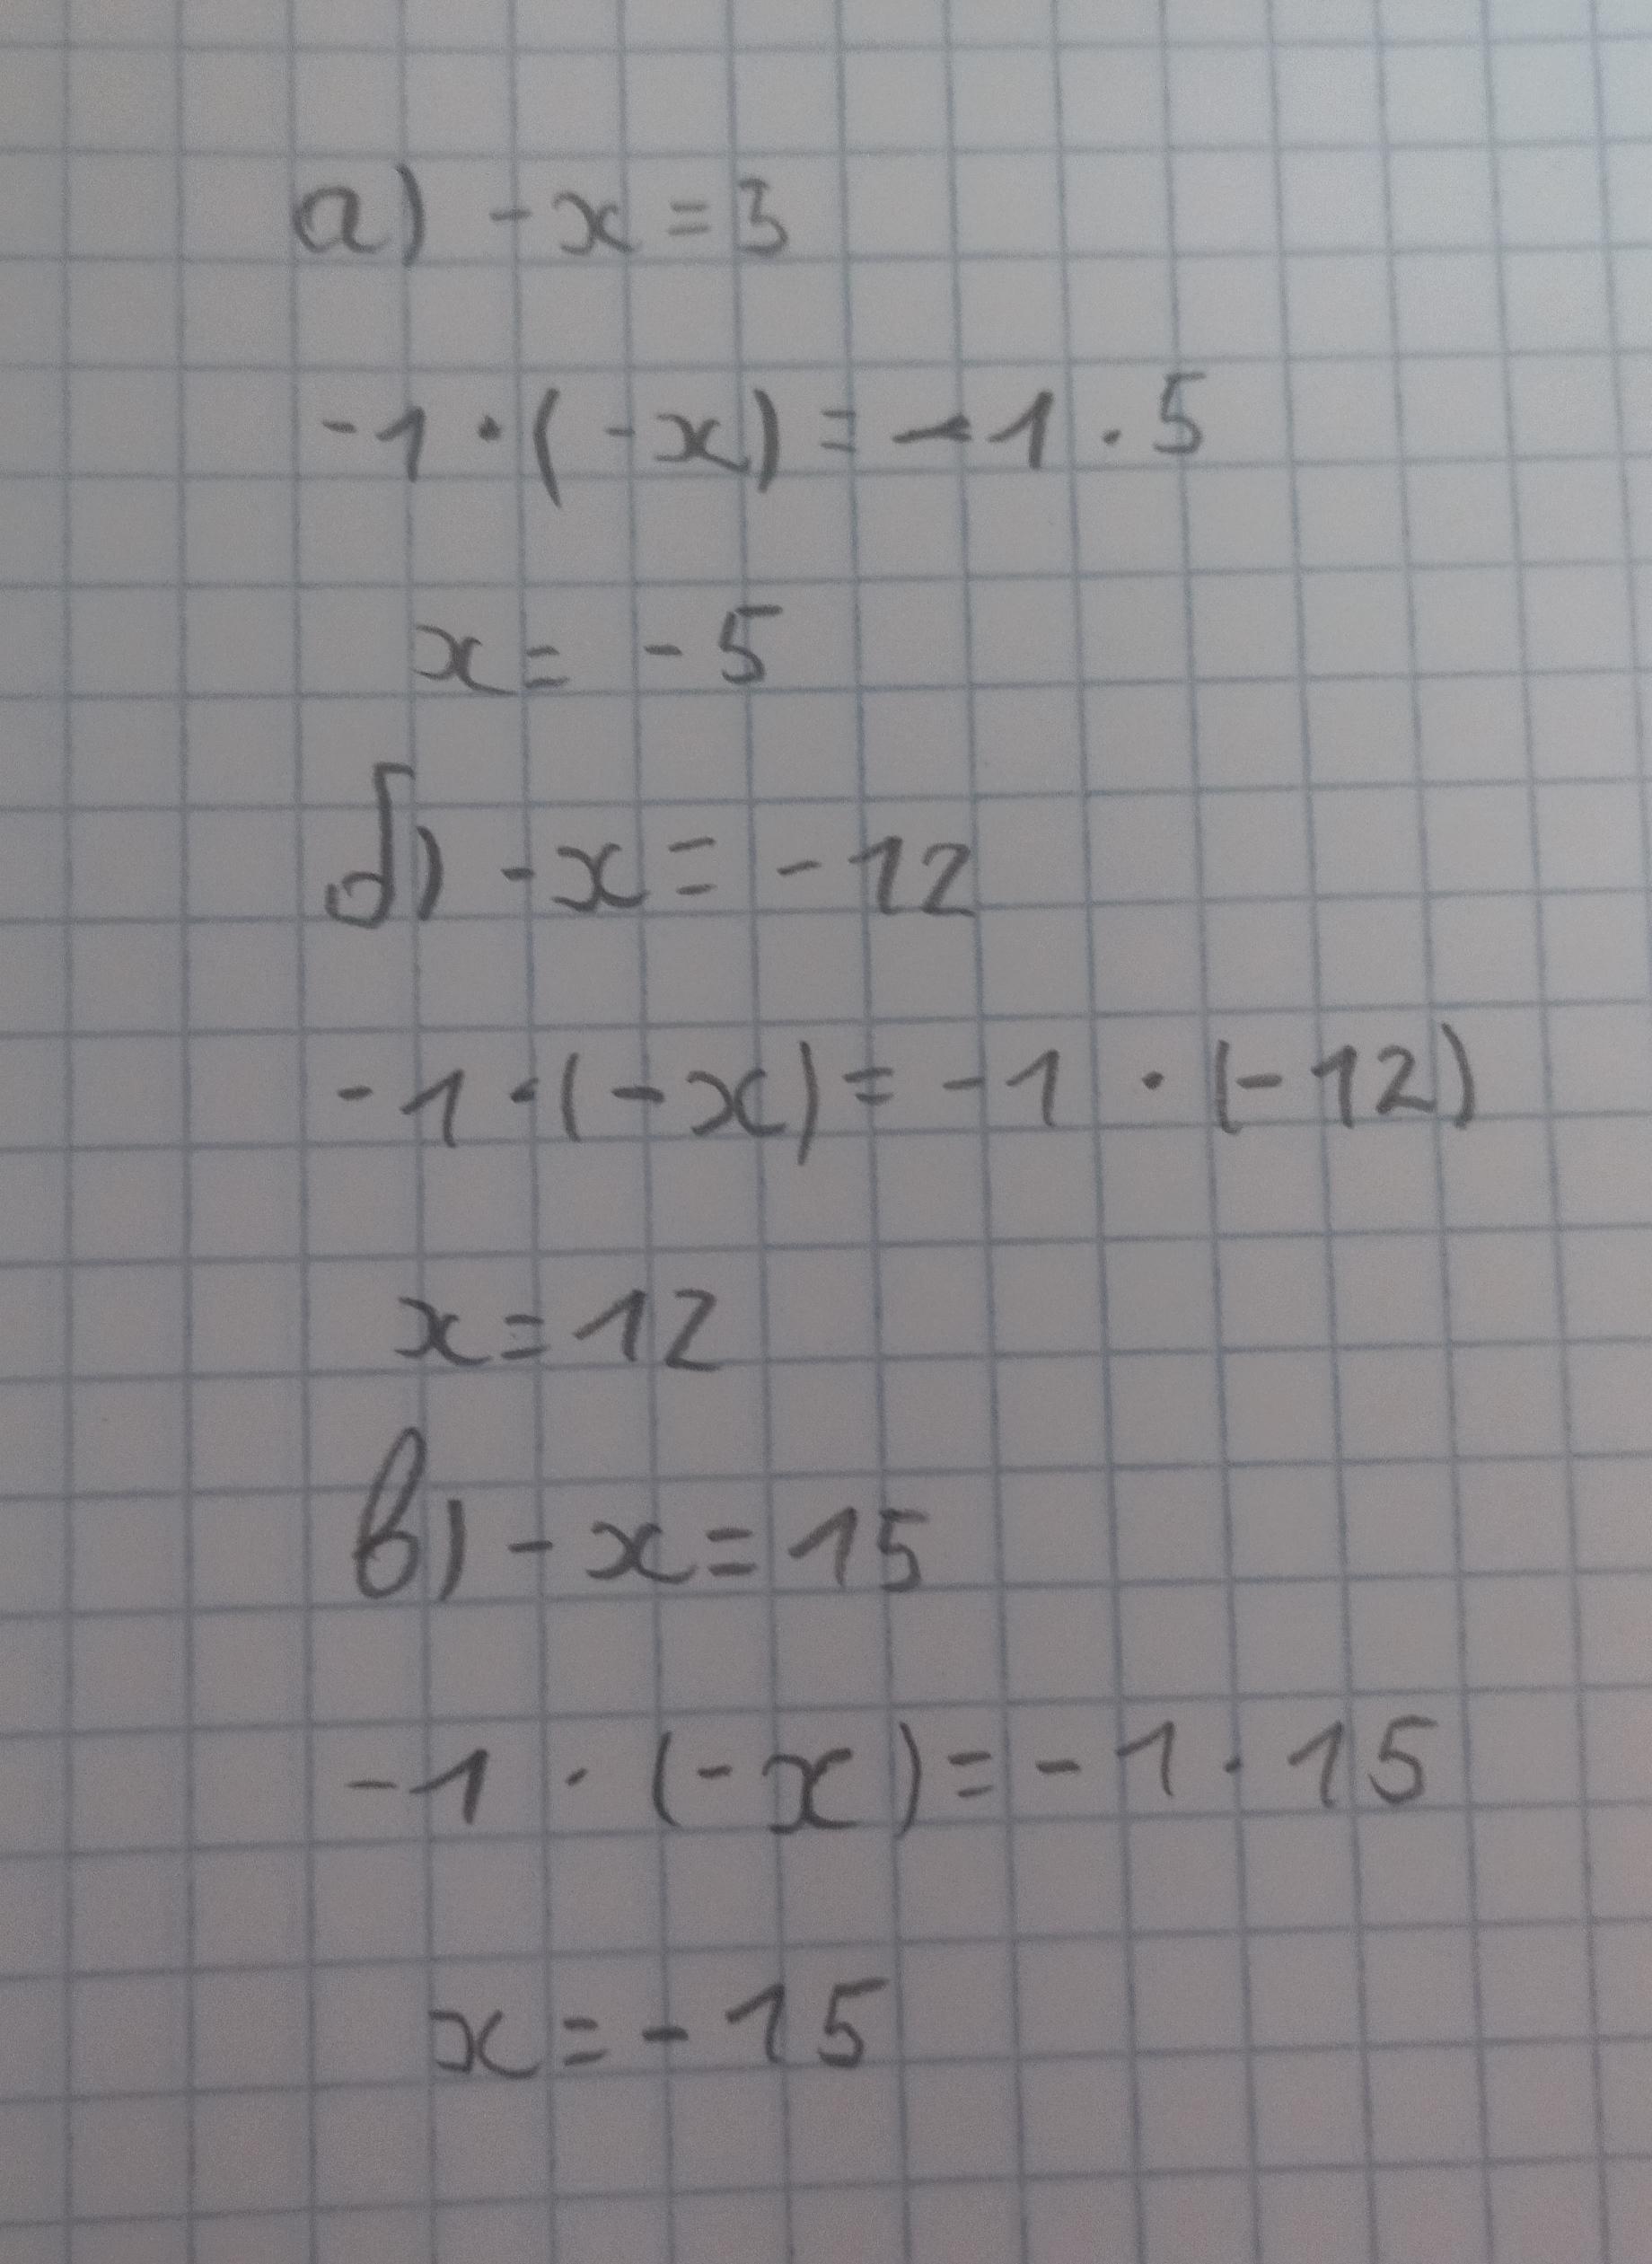 а) -x=3
-1·(-x)=-1·5
x=-5
б) -x=-12
-1·(-x)=-1·(-12)
x=12
в) -x=15
-1·(-x)=-1·15
x=-15